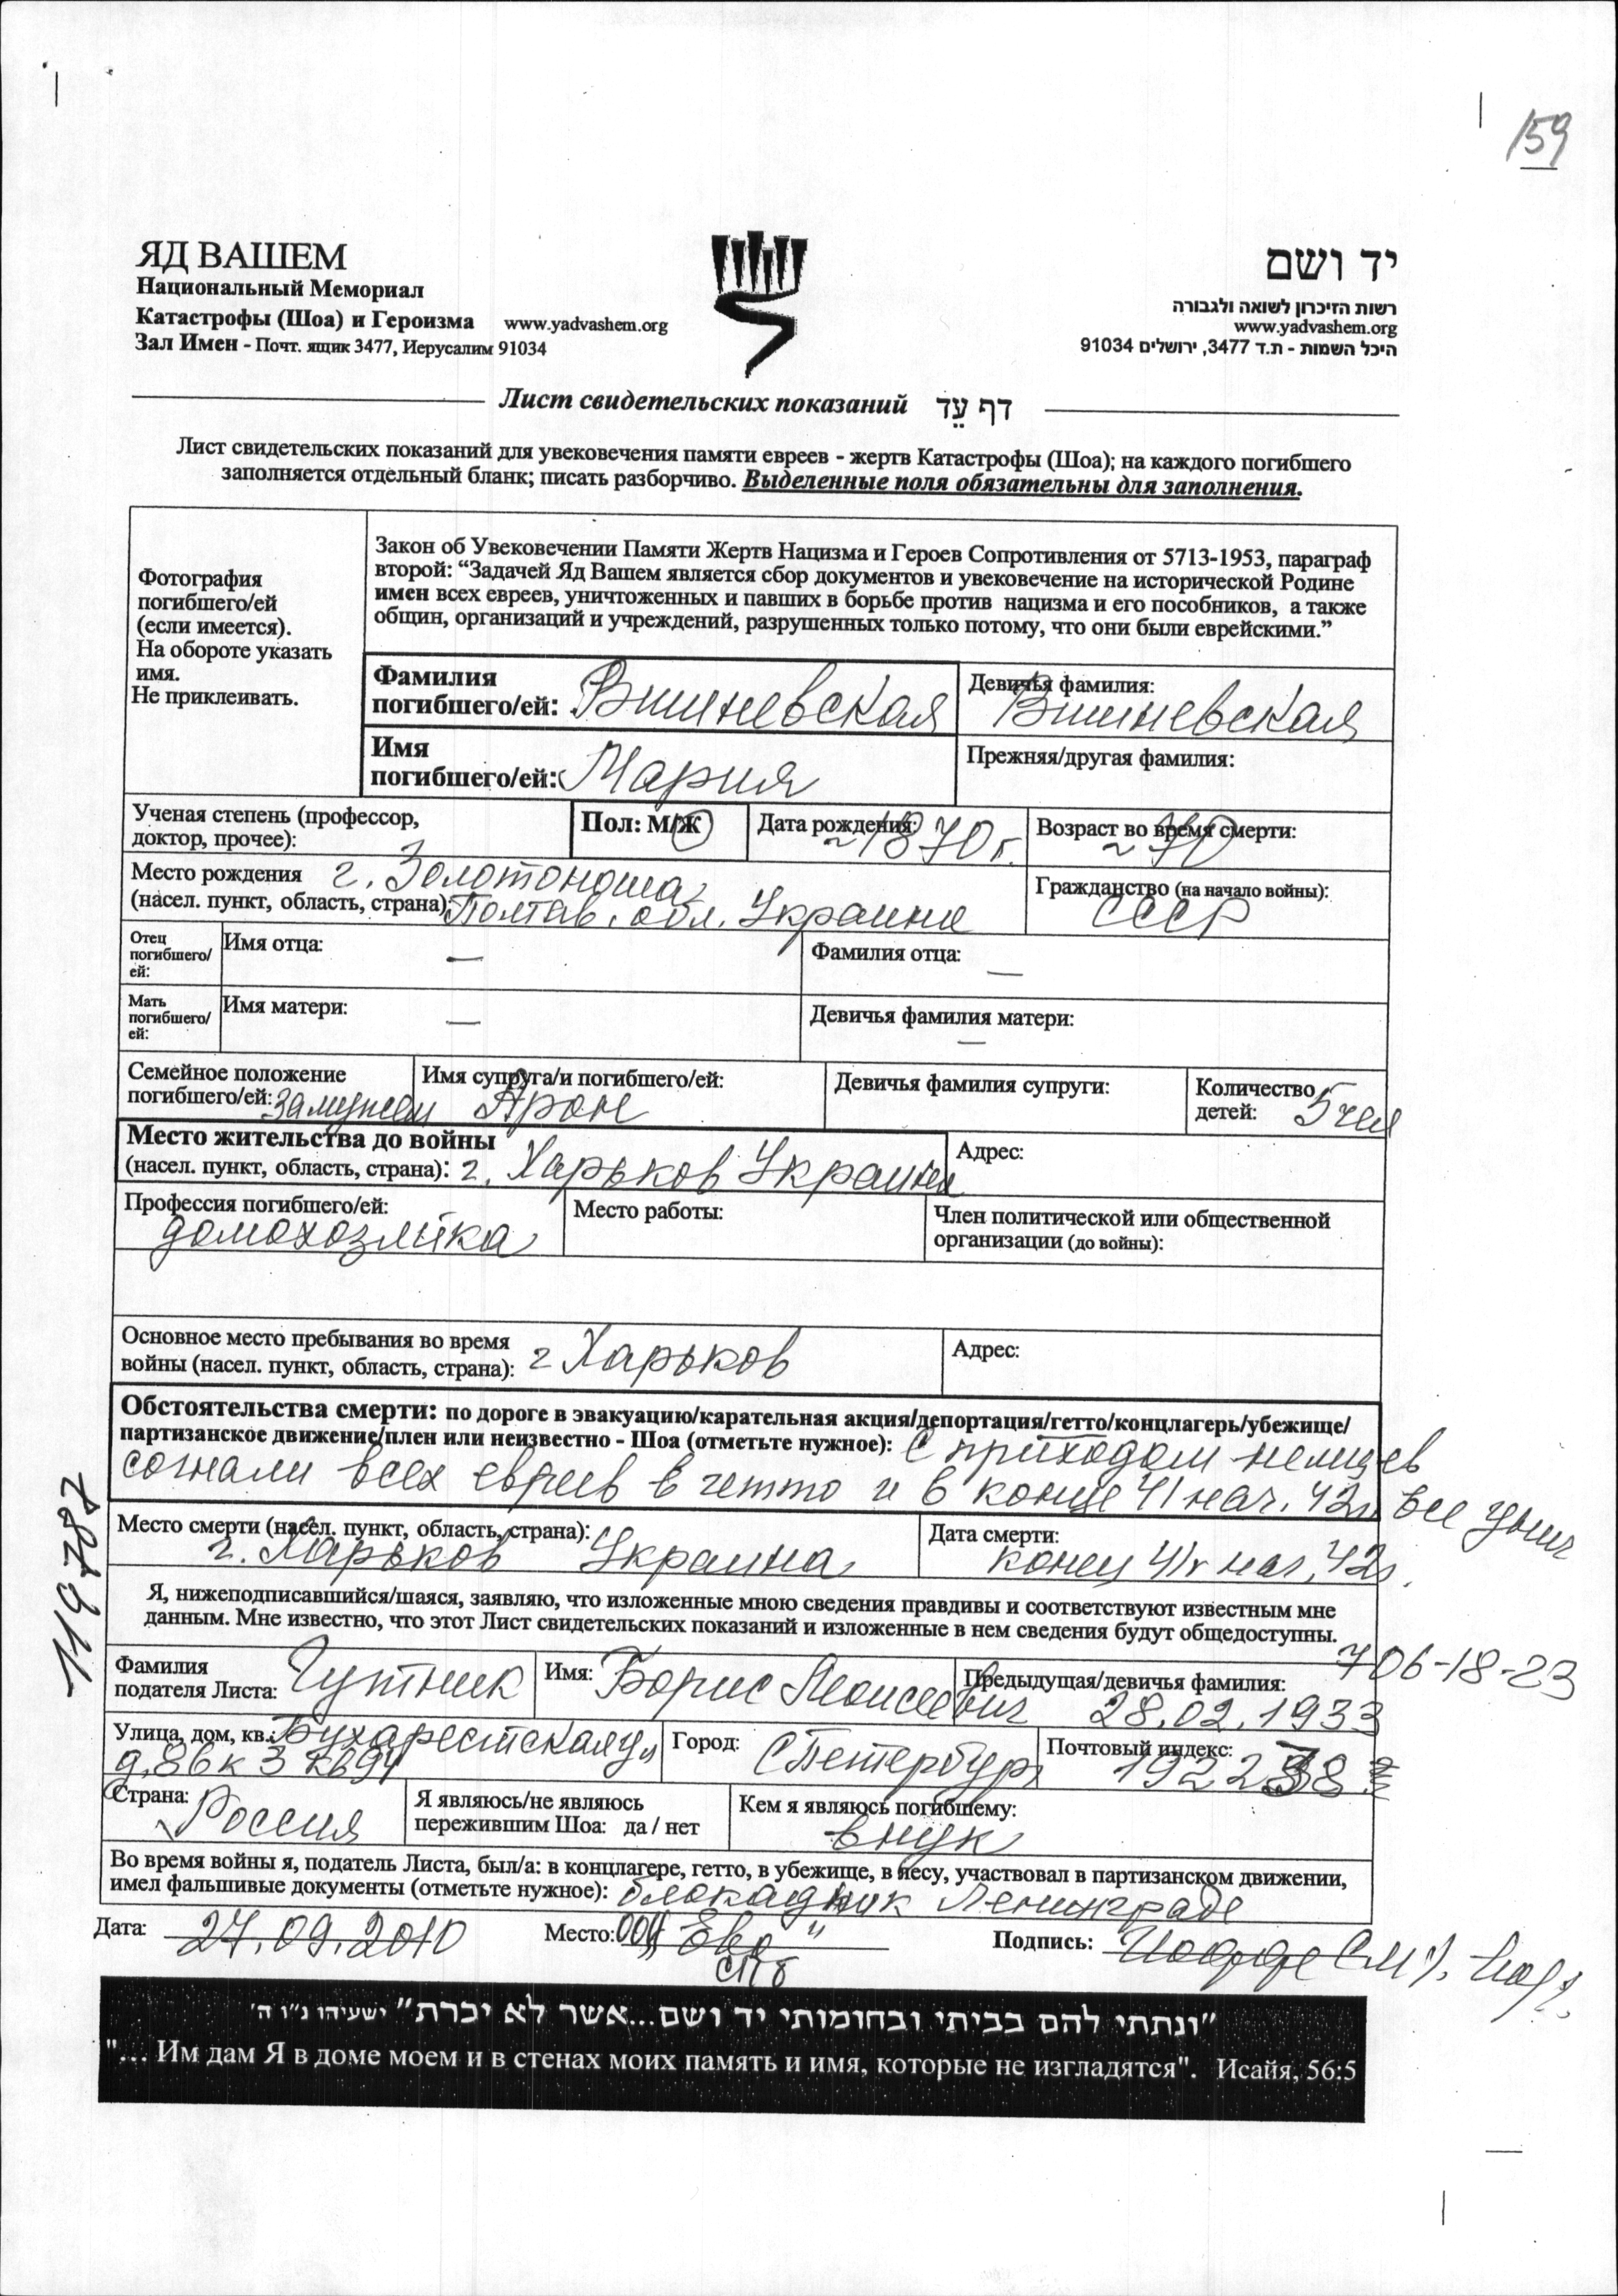 159
ЯД ВАШЕМ
Национальный Мемориал
Катастрофы (Шоа) и Героизма www.yadvashem.org
Зал Имен - Почт. ящик 3477, Иерусалим 91034
יד ושם
רשות הזיכרון לשואה ולגבורה
www.yadvashem.org
היכל השמות - ת.ד 3477, ירושלים 91034
Лист свидетельских показаний דף עֵד
Лист свидетельских показаний для увековечения памяти евреев - жертв Катастрофы (Шоа); на каждого погибшего
заполняется отдельный бланк; писать разборчиво. Выделенные поля обязательны для заполнения.
Фотография
погибшего/ей
(если имеется).
На обороте указать
имя.
Не приклеивать.
Закон об Увековечении Памяти Жертв Нацизма и Героев Сопротивления от 5713-1953, параграф
второй: “Задачей Яд Вашем является сбор документов и увековечение на исторической Родине
имен всех евреев, уничтоженных и павших в борьбе против нацизма и его пособников, а также
общин, организаций и учреждений, разрушенных только потому, что они были еврейскими.”
Фамилия
погибшего/ей: Вишневская
Девичья фамилия:
Вишневская
Имя
погибшего/ей: Мария
Прежняя/другая фамилия:
Ученая степень (профессор,
доктор, прочее):
Пол: М/Ж
Дата рождения:
~1870 г.
Возраст во время смерти:
~70
Место рождения г. Золотоноша,
(насел. пункт, область, страна): Полтав. обл. Украина
Гражданство (на начало войны):
СССР
Отец
погибшего/
ей:
Имя отца: —
Фамилия отца: —
Мать
погибшего/
ей:
Имя матери: —
Девичья фамилия матери:
—
Семейное положение
погибшего/ей: замужем
Имя супруга/и погибшего/ей:
Арон
Девичья фамилия супруги:
Количество
детей: 5 чел
Место жительства до войны
(насел. пункт, область, страна): г. Харьков Украина
Адрес:
Профессия погибшего/ей:
домохозяйка
Место работы:
Член политической или общественной
организации (до войны):
Основное место пребывания во время
войны (насел. пункт, область, страна): г Харьков
Адрес:
Обстоятельства смерти: по дороге в эвакуацию/карательная акция/депортация/гетто/концлагерь/убежище/
партизанское движение/плен или неизвестно - Шоа (отметьте нужное): С приходом немцев
согнали всех евреев в гетто и в конце 41 нач. 42г. все
Место смерти (насел. пункт, область, страна):
г. Харьков Украина
Дата смерти:
конец 41г нач. 42г.
119787
Я, нижеподписавшийся/шаяся, заявляю, что изложенные мною сведения правдивы и соответствуют известным мне
данным. Мне известно, что этот Лист свидетельских показаний и изложенные в нем сведения будут общедоступны.
706-18-23
Фамилия
подателя Листа: Чутник
Имя: Борис Моисеевич
Предыдущая/девичья фамилия:
28.02.1933
Улица, дом, кв.: Бухарестская ул
д. 86 к 3 кв 94
Город: СПетербург
Почтовый индекс:
192238
Страна:
Россия
Я являюсь/не являюсь
пережившим Шоа: да / нет
Кем я являюсь погибшему:
внук
Во время войны я, податель Листа, был/а: в концлагере, гетто, в убежище, в лесу, участвовал в партизанском движении,
имел фальшивые документы (отметьте нужное): блокадник Ленинграда
Дата: 27.09.2010
Место: ООО „Ева”
СПб
Подпись: Иоффе С.М.
"ונתתי להם בביתי ובחומותי יד ושם...אשר לא יכרת" ישעיהו נ"ו ה'
"... Им дам Я в доме моем и в стенах моих память и имя, которые не изгладятся". Исайя, 56:5